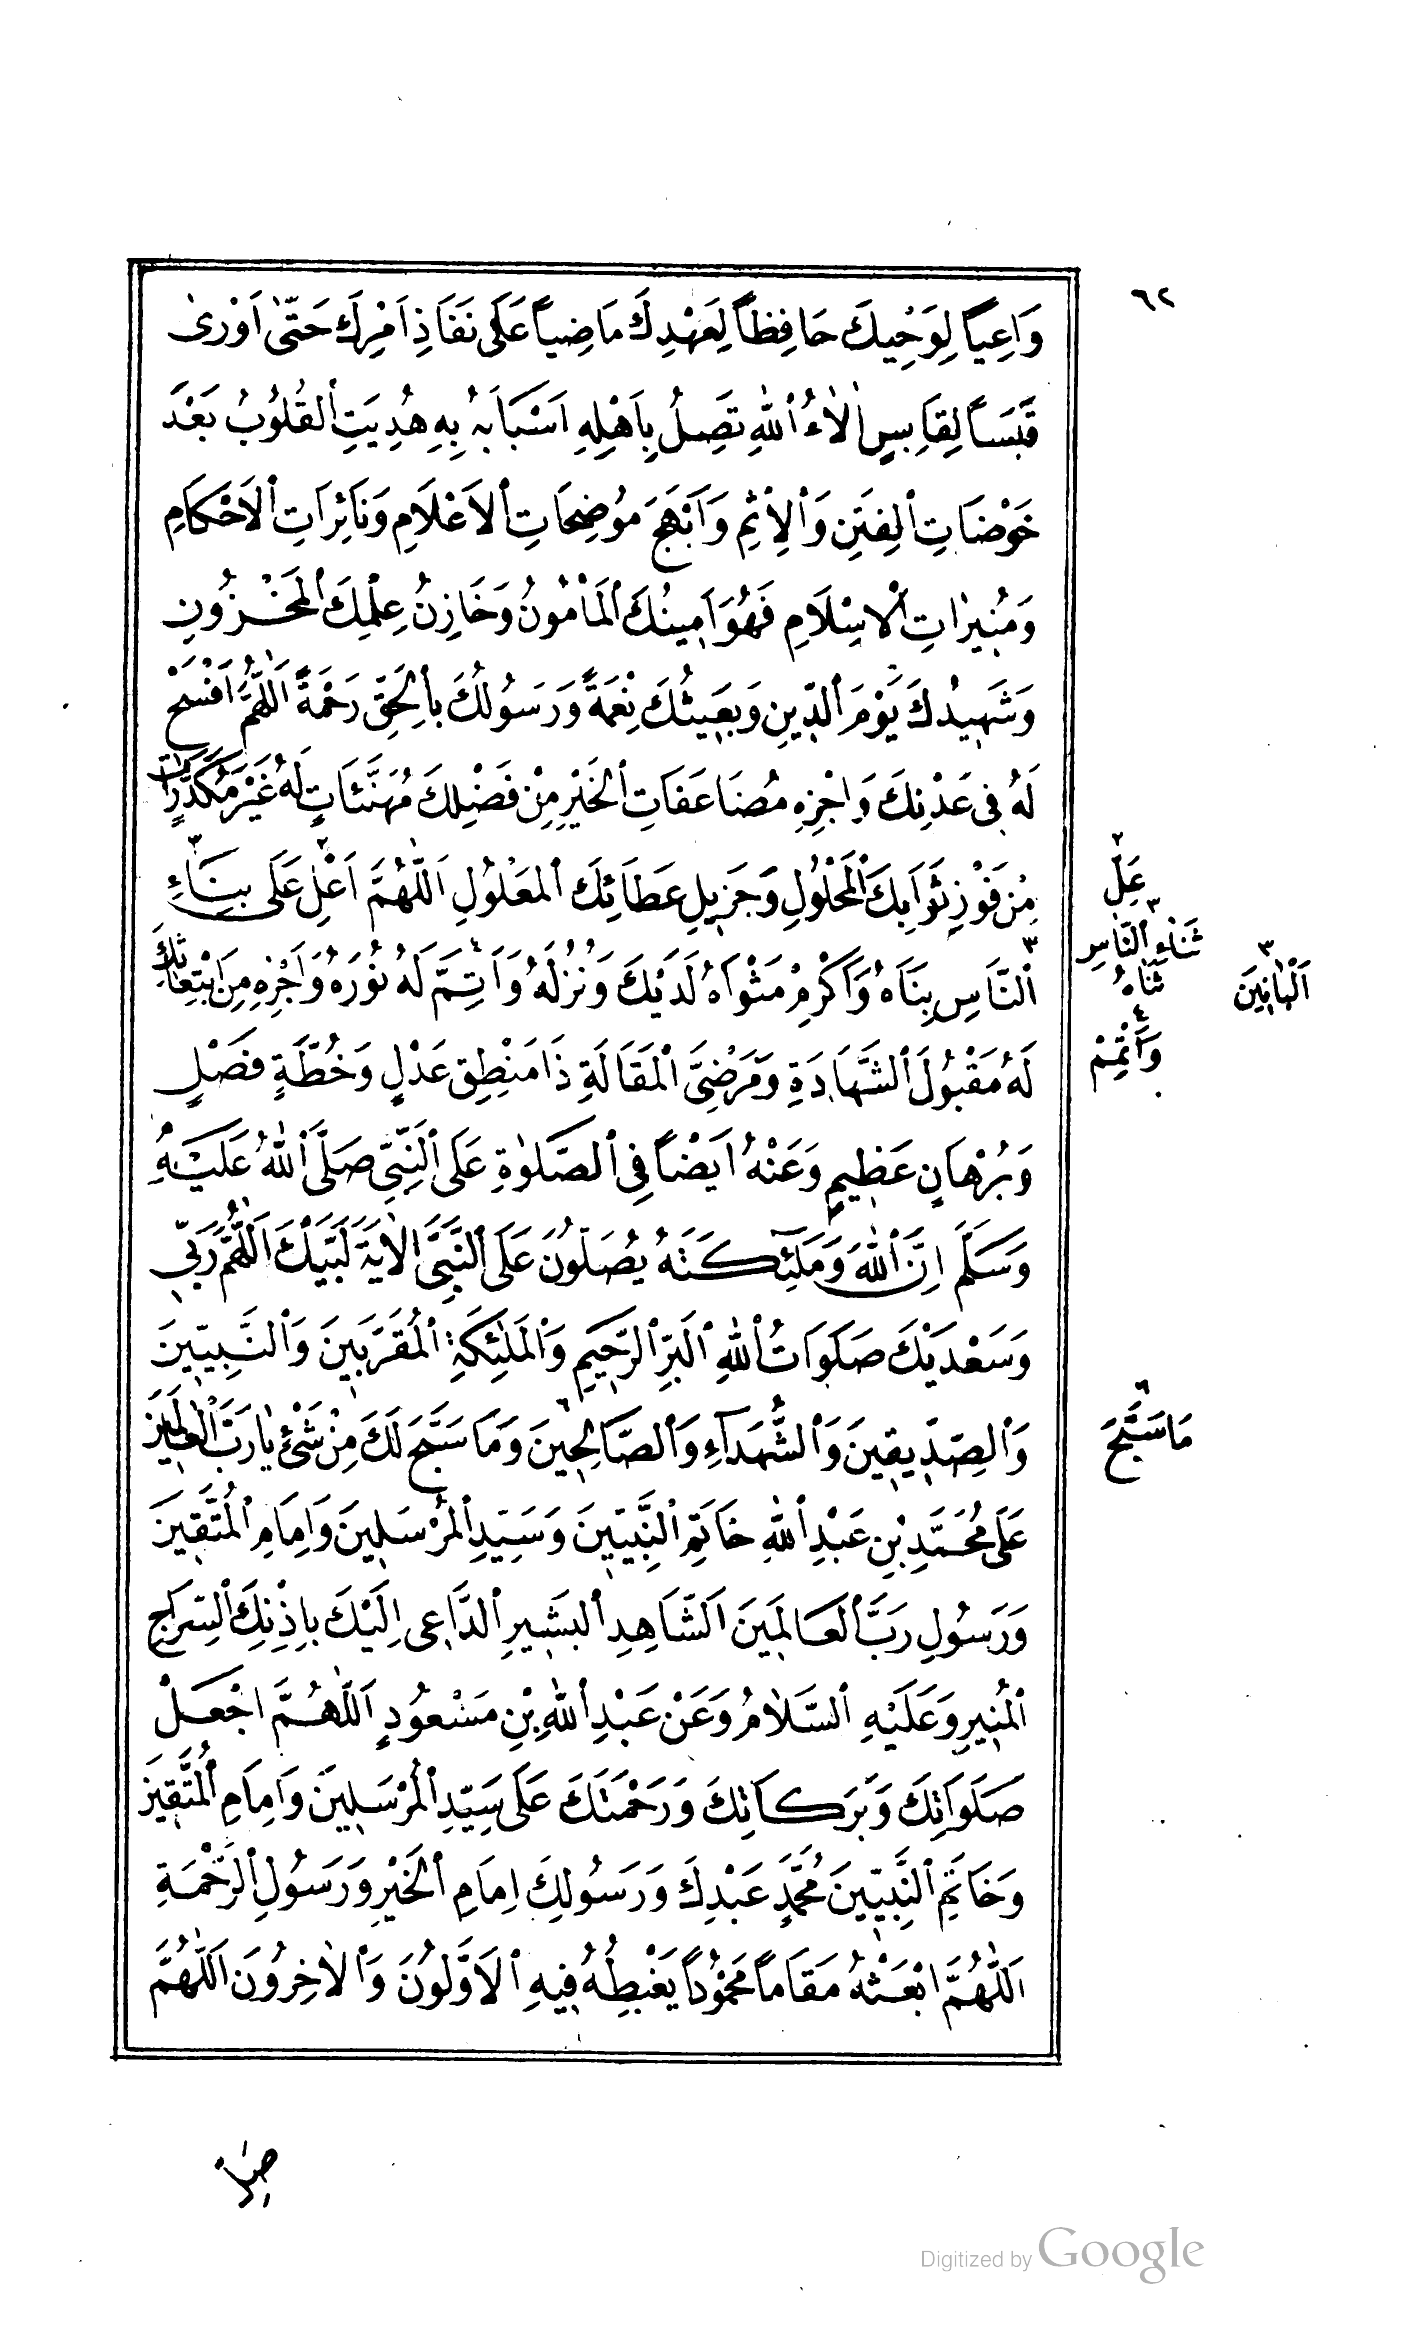 ٦٢
وَاعِياً لِوَحْيِكَ حَافِظاً لِعَهْدِكَ مَاضِياً عَلَى نَفَاذِ اَمْرِكَ حَتّٰى اَوْرىٰ
قَبَساً لِقَابِسٍ اٰلَاءُ اللّٰهِ تَصِلُ بِاَهْلِهِ اَسْبَابَهُ بِهِ هُدِيَتِ الْقُلُوبُ بَعْدَ
خَوْضَاتِ الْفِتَنِ وَالْاِثْمِ وَاَبْهَجَ مُوضِحَاتِ الْاَعْلَامِ وَنَائِرَاتِ الْاَحْكَامِ
وَمُنِيرَاتِ الْاِسْلَامِ فَهُوَ اَمِينُكَ الْمَأْمُونُ وَخَازِنُ عِلْمِكَ الْمَخْزُونِ
وَشَهِيدُكَ يَوْمَ الدِّينِ وَبَعِيثُكَ نِعْمَةً وَرَسُولُكَ بِالْحَقِّ رَحْمَةً اَللّٰهُمَّ افْسَحْ
لَهُ فِى عَدْنِكَ وَاجْزِهِ مُضَاعَفَاتِ الْخَيْرِ مِنْ فَضْلِكَ مُهَنَّئَاتٍ لَهُ غَيْرَ مُكَدَّرَاتٍ
مِنْ فَوْزِ ثَوَابِكَ الْمَحْلُولِ وَجَزِيلِ عَطَائِكَ الْمَعْلُولِ اَللّٰهُمَّ اَعْلِ عَلَى بِنَاءِ
النَّاسِ بِنَاهُ وَاَكْرِمْ مَثْوَاهُ لَدَيْكَ وَنُزُلَهُ وَاَتِمَّ لَهُ نُورَهُ وَاجْزِهِ مِنِ ابْتِعَاثِكَ
لَهُ مَقْبُولَ الشَّهَادَةِ وَمَرْضِىَّ الْمَقَالَةِ ذَا مَنْطِقٍ عَدْلٍ وَخُطَّةٍ فَصْلٍ
وَبُرْهَانٍ عَظِيمٍ وَعَنْهُ اَيْضاً فِى الصَّلوٰةِ عَلَى النَّبِيِّ صَلَّى اللّٰهُ عَلَيْهِ
وَسَلَّمَ اِنَّ اللّٰهَ وَمَلٰئِكَتَهُ يُصَلُّونَ عَلَى النَّبِىِّ الْاٰيَةَ لَبَّيْكَ اَللّٰهُمَّ رَبِّي
وَسَعْدَيْكَ صَلَوَاتُ اللّٰهِ الْبَرِّ الرَّحِيمِ وَالْمَلٰئِكَةِ الْمُقَرَّبِينَ وَالنَّبِيِّينَ
وَالصِّدِّيقِينَ وَالشُّهَدَآءِ وَالصَّالِحِينَ وَمَا سَبَّحَ لَكَ مِنْ شَىْءٍ يَا رَبَّ الْعَالَمِينَ
عَلَى مُحَمَّدِ بْنِ عَبْدِ اللّٰهِ خَاتِمِ النَّبِيّينَ وَسَيِّدِ الْمُرْسَلِينَ وَاِمَامِ الْمُتَّقِينَ
وَرَسُولِ رَبِّ الْعَالَمِينَ اَلشَّاهِدِ الْبَشِيرِ الدَّاعِى اِلَيْكَ بِاِذْنِكَ السِّرَاجِ
الْمُنِيرِ وَعَلَيْهِ السَّلَامُ وَعَنْ عَبْدِ اللّٰهِ بْنِ مَسْعُودٍ اَللّٰهُمَّ اجْعَلْ
صَلَوَاتِكَ وَبَرَكَاتِكَ وَرَحْمَتَكَ عَلَى سَيِّدِ الْمُرْسَلِينَ وَاِمَامِ الْمُتَّقِينَ
وَخَاتِمِ النَّبِيّينَ مُحَمَّدٍ عَبْدِكَ وَرَسُولِكَ اِمَامِ الْخَيْرِ وَرَسُولِ الرَّحْمَةِ
اَللّٰهُمَّ ابْعَثْهُ مَقَاماً مَحْمُوداً يَغْبِطُهُ فِيهِ الْاَوَّلُونَ وَالْاٰخِرُونَ اَللّٰهُمَّ
٢
عَلِّ
٣
ثَنَاءِ النَّاسِ
ثَنَاهُ
٣
اَلْبَانِينَ
٤
وَاَتْمِمْ
٦
مَا سَبَّحَ
Digitized by Google